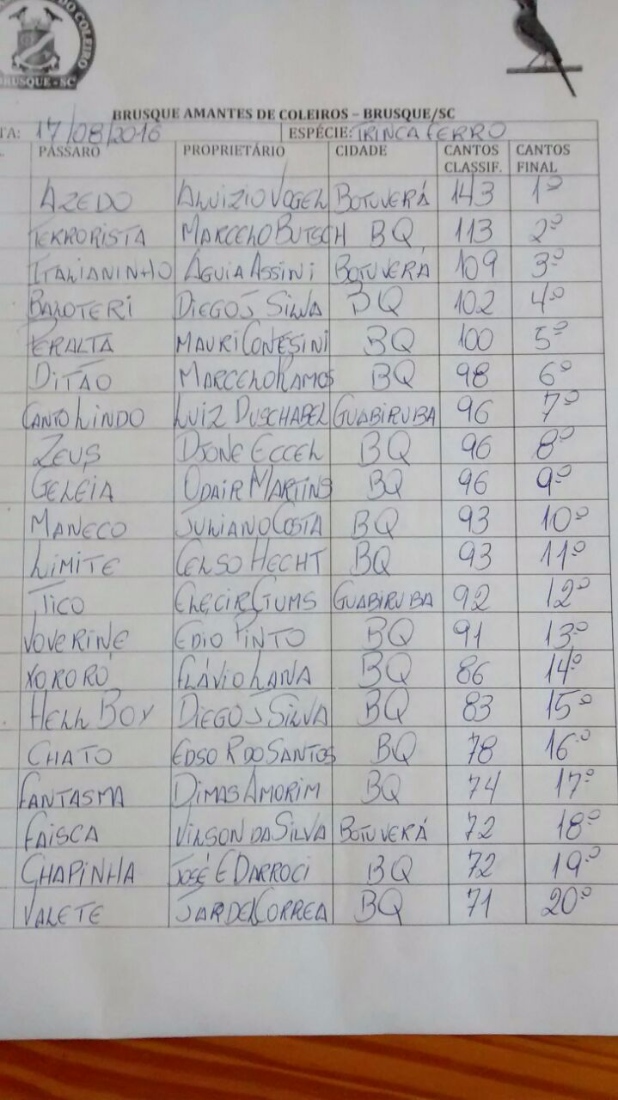 DO COLEIRO
BRUSQUE - SC
BRUSQUE AMANTES DE COLEIROS – BRUSQUE/SC
TA: 17/08/2016 ESPÉCIE: TRINCA FERRO
PÁSSARO PROPRIETÁRIO CIDADE CANTOS CLASSIF. CANTOS FINAL
AZEDO ALUIZIO VOGEL BOTUVERÁ 143 1º
TERRORISTA MARCELO BUTSCH BQ 113 2º
ITALIANINHO AGUIA ASSINI BOTUVERÁ 109 3º
BALOTERI DIEGO J SILVA BQ 102 4º
PERALTA MAURI CONESINI BQ 100 5º
DITÃO MARCELO RAMOS BQ 98 6º
CANTO LINDO LUIZ DUSCHABEL GUABIRUBA 96 7º
ZEUS DJONE ECCEL BQ 96 8º
GELEIA ODAIR MARTINS BQ 96 9º
MANECO JULIANO COSTA BQ 93 10º
LIMITE CELSO HECHT BQ 93 11º
TICO CLECIR GUMS GUABIRUBA 92 12º
VOVERINE EDIO PINTO BQ 91 13º
XORORÓ FLÁVIO LANA BQ 86 14º
HELL BOY DIEGO J SILVA BQ 83 15º
CHATO EDSO R DO SANTOS BQ 78 16º
FANTASMA DIMAS AMORIM BQ 74 17º
FAISCA VILSON DA SILVA BOTUVERÁ 72 18º
CHAPINHA JOSÉ E DARROCI BQ 72 19º
VALETE JARDEL CORREA BQ 71 20º